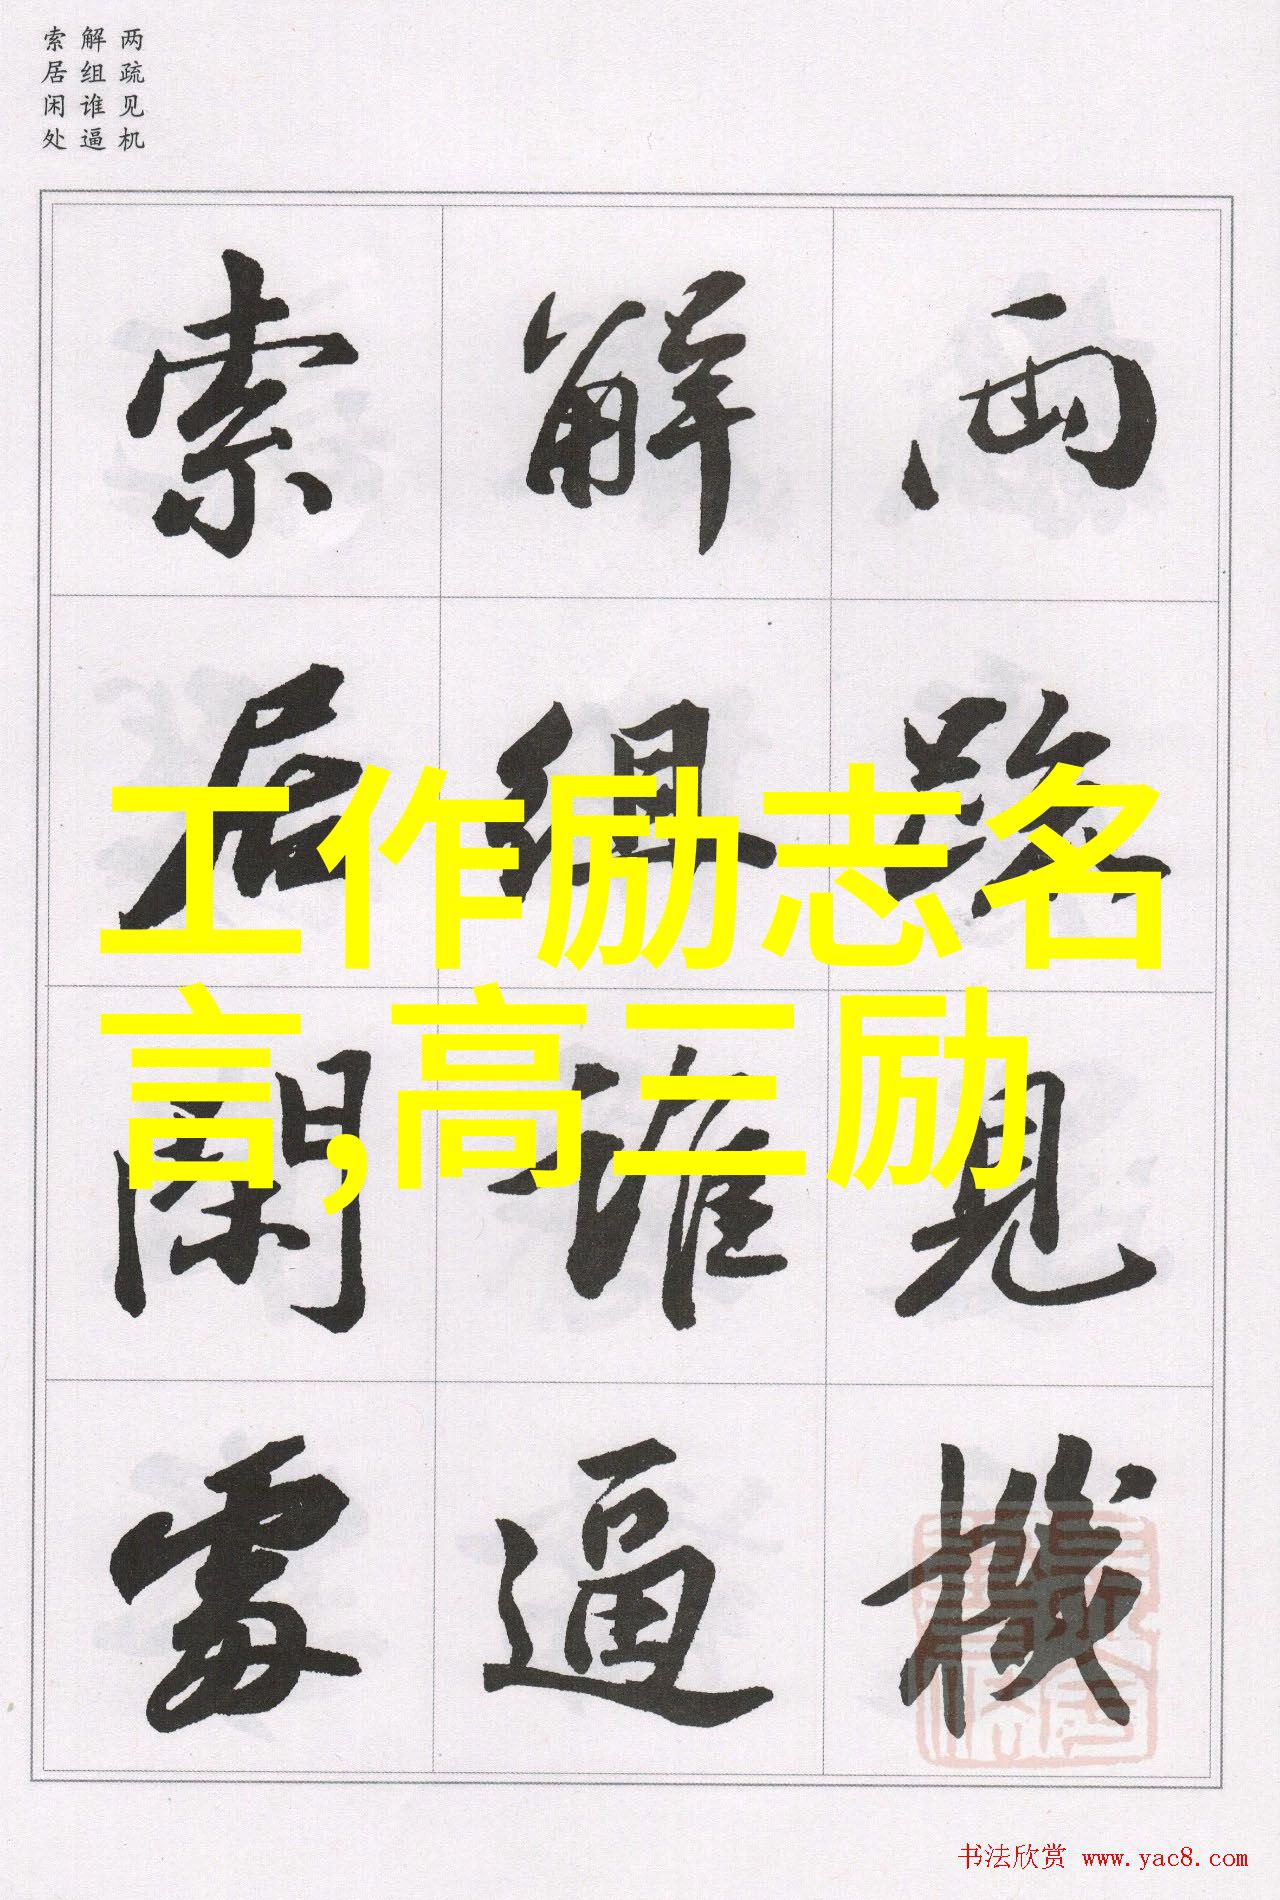 两疏见机
解组谁逼
索居闲处
兩疏見機
解組誰逼
索居閑處
工作励志名
言,高三励
书法欣赏 www.yac8.com